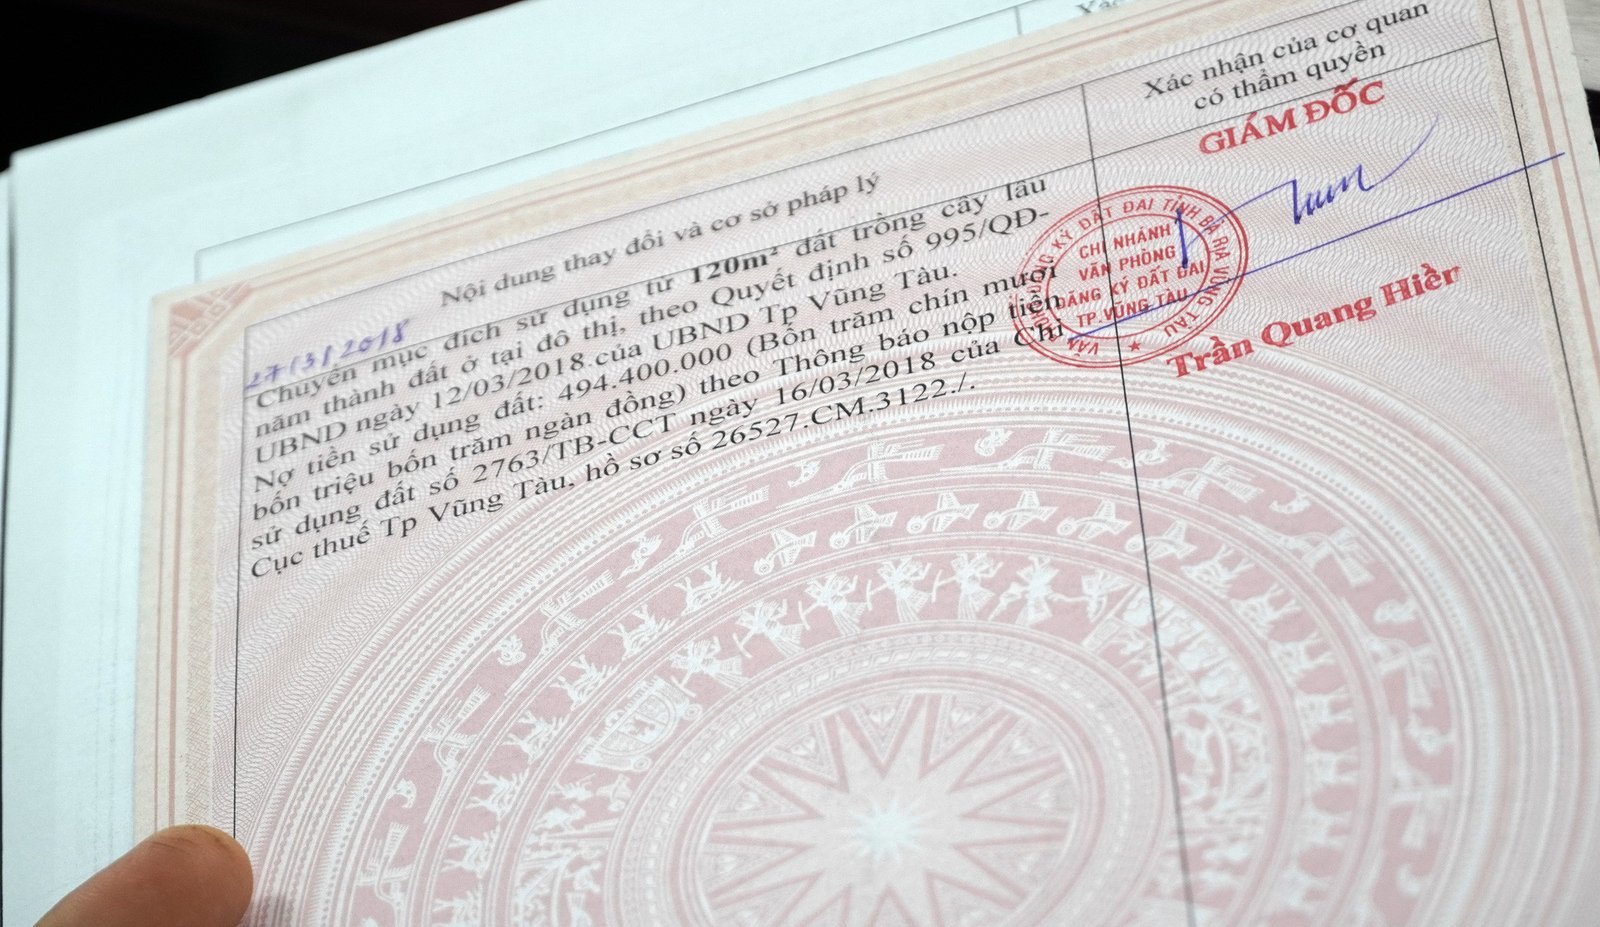 Xác
Nội dung thay đổi và cơ sở pháp lý
Xác nhận của cơ quan
có thẩm quyền
27/3/2018
Chuyển mục đích sử dụng từ 120m² đất trồng cây lâu
năm thành đất ở tại đô thị, theo Quyết định số 995/QĐ-
UBND ngày 12/03/2018 của UBND Tp Vũng Tàu.
Nợ tiền sử dụng đất: 494.400.000 (Bốn trăm chín mươi
bốn triệu bốn trăm ngàn đồng) theo Thông báo nộp tiền
sử dụng đất số 2763/TB-CCT ngày 16/03/2018 của Chi
Cục thuế Tp Vũng Tàu, hồ sơ số 26527.CM.3122./.
GIÁM ĐỐC
VĂN PHÒNG ĐĂNG KÝ ĐẤT ĐAI TỈNH BÀ RỊA VŨNG TÀU
CHI NHÁNH
VĂN PHÒNG
ĐĂNG KÝ ĐẤT ĐAI
TP.VŨNG TÀU
Trần Quang Hiền